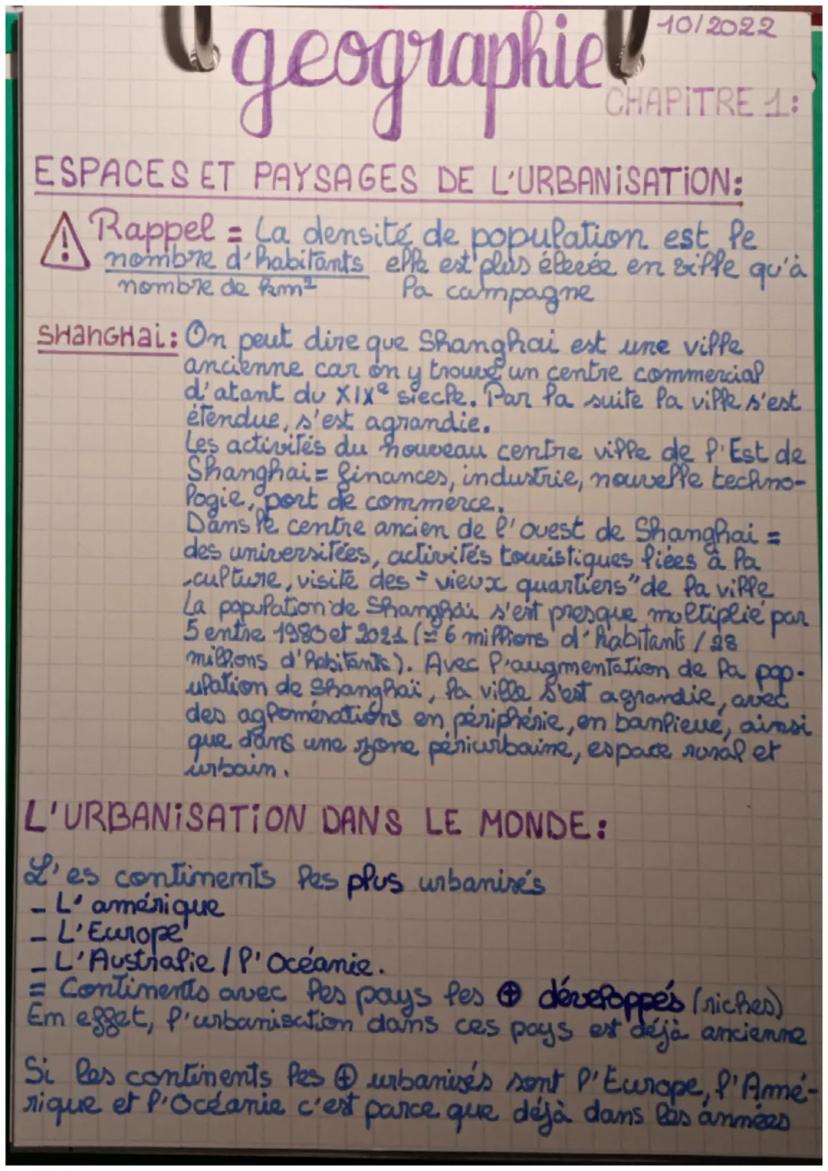 10/2022
geographie
CHAPITRE 1:
ESPACES ET PAYSAGES DE L'URBANISATION:
Rappel = La densité de population est le
nombre d'habitants elle est plus élevée en ville qu'à
nombre de km² la campagne
SHANGHAI: On peut dire que Shanghai est une ville
ancienne car on y trouve un centre commercial
d'atant du XIXe siecle. Par la suite la ville s'est
étendue, s'est agrandie.
Les activités du nouveau centre ville de l'Est de
Shanghai = finances, industrie, nouvelle techno-
logie, port de commerce.
Dans le centre ancien de l'ouest de Shanghai =
des universitées, activités touristiques liées à la
culture, visite des "vieux quartiers" de la ville
La population de Shanghai s'est presque multiplié par
5 entre 1980 et 2021 (= 6 millions d'habitants / 28
millions d'habitants). Avec l'augmentation de la pop-
ulation de Shanghaï, la ville s'est agrandie, avec
des aglomérations en périphérie, en banlieue, ainsi
que dans une zone périurbaine, espace rural et
urbain.
L'URBANISATION DANS LE MONDE:
L'es continents les plus urbanisés
- L'amérique
- L'Europe
- L'Australie / l'Océanie.
= Continents avec les pays les ⊕ développés (riches)
En effet, l'urbanisation dans ces pays est déjà ancienne
Si les continents les ⊕ urbanisés sont l'Europe, l'Amé-
rique et l'Océanie c'est parce que déjà dans les années